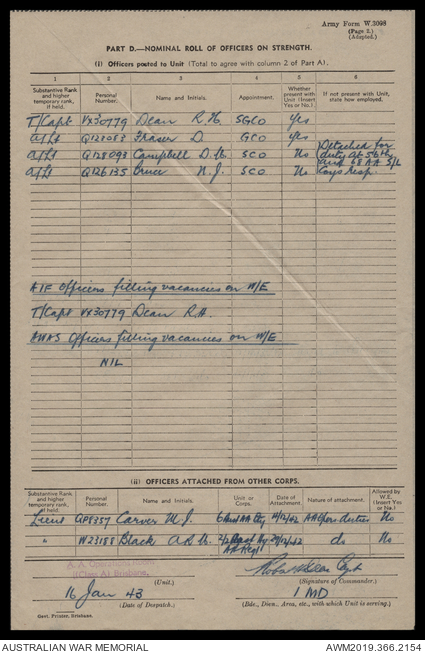 Army Form W.3098
(Page 2.)
(Adapted.)
PART D.—NOMINAL ROLL OF OFFICERS ON STRENGTH.
(i) Officers posted to Unit (Total to agree with column 2 of Part A).
1 2 3 4 5 6
Substantive Rank and higher temporary rank, if held. Personal Number. Name and Initials. Appointment. Whether present with Unit (Insert Yes or No.) If not present with Unit, state how employed.
T/Capt VX30779 Dean R.H. SGCO yes
A/Lt Q123083 Fraser D. GCO yes
A/Lt Q128093 Campbell D.H. SCO No Detached for duty at 56th and 68 AA S/L
A/Lt Q126135 Bruce N.J. SCO No Coys resp.
AIF Officers filling vacancies on W/E
T/Capt VX30779 Dean R.H.
AWAS Officers filling vacancies on W/E
NIL
(ii) OFFICERS ATTACHED FROM OTHER CORPS.
Substantive Rank and higher temporary rank, if held. Personal Number. Name and Initials. Unit or Corps. Date of Attachment. Nature of attachment. Allowed by W.E. (Insert Yes or No.)
Lieut QP8357 Carver M.J. 6 AA Bty /12/42 duties No
" W23188 Black /12/42 do No
A. A.
Brisbane,
(Unit.)
(Signature of Commander.)
16 Jan 43
1 MD
(Date of Despatch.)
(Bde., Divn., Area, etc., with which Unit is serving.)
Govt. Printer, Brisbane.
AUSTRALIAN WAR MEMORIAL
AWM2019.366.2154